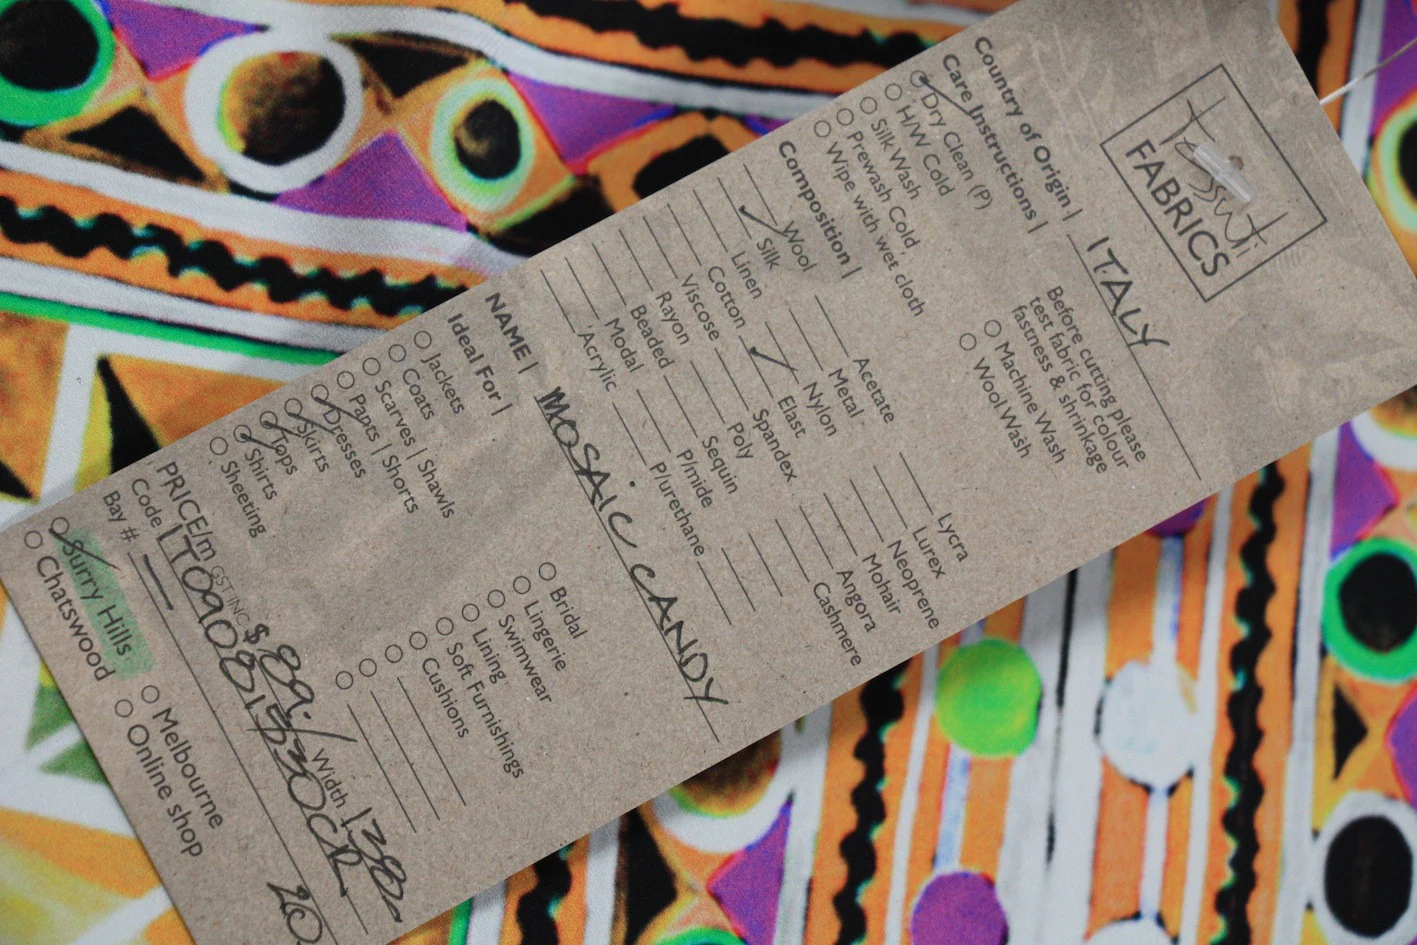 Tessuti
FABRICS
Country of Origin | ITALY
Care Instructions |
Dry Clean (P)
H/W Cold
Silk Wash
Prewash Cold,
Wipe with wet cloth
Before cutting please
test fabric for colour
fastness & shrinkage
Machine Wash
Wool Wash
Composition |
Wool
Silk
Linen
Cotton
Viscose
Rayon
Beaded
Modal
Acrylic
Acetate
Metal
Nylon
Elast
Spandex
Poly
Sequin
P/mide
P/urethane
Lycra
Lurex
Neoprene
Mohair
Angora
Cashmere
NAME | MOSAIC CANDY
Ideal For |
Jackets
Coats
Scarves | Shawls
Pants | Shorts
Dresses
Skirts
Tops
Shirts
Sheeting
Bridal
Lingerie
Swimwear
Lining
Soft Furnishings
Cushions
PRICE/m GST INC $89. Width
Code
Bay # —
20
Surry Hills
Chatswood
Melbourne
Online shop